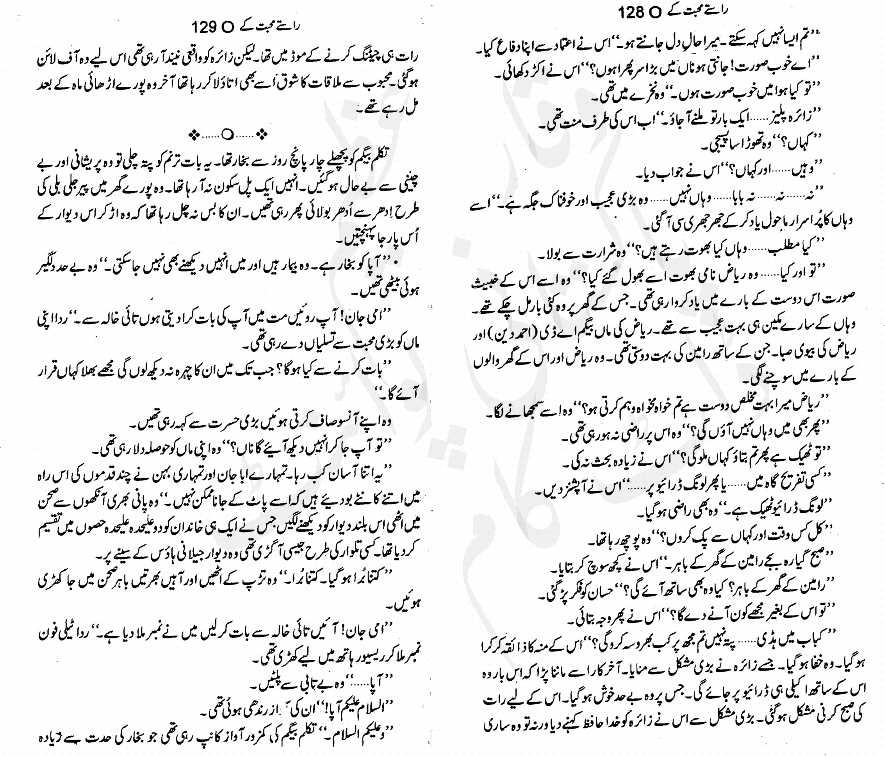 راستے محبت کے O 128
’’تم ایسا نہیں کہہ سکتے۔ میرا حالِ دل جانتے ہو۔‘‘ اس نے اعتماد سے اپنا دفاع کیا۔
’’اے خوب صورت! جانتی ہو ناں میں بڑا سر پھرا ہوں؟‘‘ اس نے اکڑ دکھائی۔
’’تو کیا ہوا میں خوب صورت ہوں۔‘‘ وہ نخرے میں تھی۔
’’زائرہ پلیز...... ایک بار تو ملنے آ جاؤ۔‘‘ اب اس کی طرف منت تھی۔
’’کہاں؟‘‘ وہ تھوڑا سا پسیجی۔
’’وہیں...... اور کہاں؟‘‘ اس نے جواب دیا۔
’’نہ...... نہ...... نہ بابا...... وہاں نہیں...... وہ بڑی عجیب اور خوفناک جگہ ہے۔‘‘ اسے
وہاں کا پُراسرار ماحول یاد کر کے جھرجھری سی آ گئی۔
’’کیا مطلب...... وہاں کیا بھوت رہتے ہیں؟‘‘ وہ شرارت سے بولا۔
’’تو اور کیا...... وہ ریاض نامی بھوت اسے بھول گئے کیا؟‘‘ وہ اسے اس کے خبیث
صورت اس دوست کے بارے میں یاد کروا رہی تھی۔ جس کے گھر پر وہ کئی بار مل چکے تھے۔
وہاں کے سارے مکین ہی بہت عجیب سے تھے۔ ریاض کی ماں بیگم اے ڈی (احمد دین) اور
ریاض کی بیوی صبا۔ جن کے ساتھ رامین کی بہت دوستی تھی۔ وہ ریاض اور اس کے گھر والوں
کے بارے میں سوچنے لگی۔
’’ریاض میرا بہت مخلص دوست ہے تم خواہ مخواہ وہم کرتی ہو؟‘‘ وہ اسے سمجھانے لگا۔
’’پھر بھی میں وہاں نہیں آؤں گی؟‘‘ وہ اس پر راضی نہ ہو رہی تھی۔
’’تو ٹھیک ہے پھر تم بتاؤ کہاں ملو گی؟‘‘ اس نے زیادہ بحث نہ کی۔
’’کسی تفریح گاہ میں...... یا پھر لونگ ڈرائیو پر......‘‘ اس نے آپشنز دیں۔
’’لونگ ڈرائیو ٹھیک ہے۔‘‘ وہ بھی راضی ہو گیا۔
’’کل کس وقت اور کہاں سے پک کروں؟‘‘ وہ پوچھ رہا تھا۔
’’صبح گیارہ بجے رامین کے گھر کے باہر۔‘‘ اس نے کچھ سوچ کر بتایا۔
’’رامین کے گھر کے باہر؟ کیا وہ بھی ساتھ آئے گی؟‘‘ حسان کو فکر پڑ گئی۔
’’تو اس کے بغیر مجھے کون آنے دے گا؟‘‘ اس نے پھر وجہ بتائی۔
’’کباب میں ہڈی...... پتہ نہیں تم مجھ پر کب بھروسہ کرو گی؟‘‘ اس کے منہ کا ذائقہ کرکرا
ہو گیا۔ وہ خفا ہو گیا۔ جسے زائرہ نے بڑی مشکل سے منایا۔ آخر کار اسے ماننا پڑا کہ اس بار وہ
اس کے ساتھ اکیلی ہی ڈرائیو پر جائے گی۔ جس پر وہ بے حد خوش ہو گیا۔ اس کے لیے رات
کی صبح کرنی مشکل ہو گئی۔ بڑی مشکل سے اس نے زائرہ کو خدا حافظ کہنے دیا ورنہ تو وہ ساری
راستے محبت کے O 129
رات ہی چیٹنگ کرنے کے موڈ میں تھا۔ لیکن زائرہ کو واقعی نیند آ رہی تھی اس لیے وہ آف لائن
ہو گئی۔ محبوب سے ملاقات کا شوق اُسے بھی اتاؤلا کر رہا تھا آخر وہ پورے اڑھائی ماہ کے بعد
مل رہے تھے۔
❖......O......❖
تکلم بیگم کو پچھلے چار پانچ روز سے بخار تھا۔ یہ بات ترنم کو پتہ چلی تو وہ پریشانی اور بے
چینی سے بے حال ہو گئیں۔ انہیں ایک پل سکون نہ آ رہا تھا۔ وہ پورے گھر میں پیر جلی بلی کی
طرح اِدھر سے اُدھر بولائی پھر رہی تھیں۔ ان کا بس نہ چل رہا تھا کہ وہ اڑ کر اس دیوار کے
اُس پار جا پہنچتیں۔
’’آپا کو بخار ہے۔ وہ بیمار ہیں اور میں انہیں دیکھنے بھی نہیں جا سکتی۔‘‘ وہ بے حد دلگیر
ہوئی بیٹھی تھیں۔
’’امی جان! آپ روئیں مت میں آپ کی بات کرا دیتی ہوں تائی خالہ سے۔‘‘ ردا اپنی
ماں کو بڑی محبت سے تسلیاں دے رہی تھی۔
’’بات کرنے سے کیا ہوگا؟ جب تک میں ان کا چہرہ نہ دیکھ لوں گی مجھے بھلا کہاں قرار
آئے گا۔‘‘
وہ اپنے آنسو صاف کرتی ہوئیں بڑی حسرت سے کہہ رہی تھیں۔
’’تو آپ جا کر انہیں دیکھ آئیے گا ناں؟‘‘ وہ اپنی ماں کو حوصلہ دلا رہی تھی۔
’’یہ اتنا آسان کب رہا۔ تمہارے ابا جان اور تمہاری بہن نے چند قدموں کی اس راہ
میں اتنے کانٹے بو دیئے ہیں کہ اسے پاٹ کے جانا ممکن نہیں۔‘‘ وہ پانی بھری آنکھوں سے صحن
میں اٹھی اس بلند دیوار کو دیکھنے لگیں جس نے ایک ہی خاندان کو دو علیحدہ علیحدہ حصوں میں تقسیم
کر دیا تھا۔ کسی تلوار کی طرح جیسی آ گڑی تھی وہ دیوار جیلانی ہاؤس کے سینے پر۔
’’کتنا بُرا ہو گیا۔ کتنا بُرا۔‘‘ وہ تڑپ کے اٹھیں اور آہیں بھرتیں باہر صحن میں جا کھڑی
ہوئیں۔
’’امی جان! آئیں تائی خالہ سے بات کر لیں میں نے نمبر ملا دیا ہے۔‘‘ ردا ٹیلی فون
نمبر ملا کر ریسیور ہاتھ میں لیے کھڑی تھی۔
’’آپا......‘‘ وہ بے تابی سے پلٹیں۔
’’السلام علیکم آپا!‘‘ ان کی آواز رندھی ہوئی تھی۔
’’وعلیکم السلام۔‘‘ تکلم بیگم کی کمزور آواز کانپ رہی تھی جو بخار کی حدت سے زیادہ